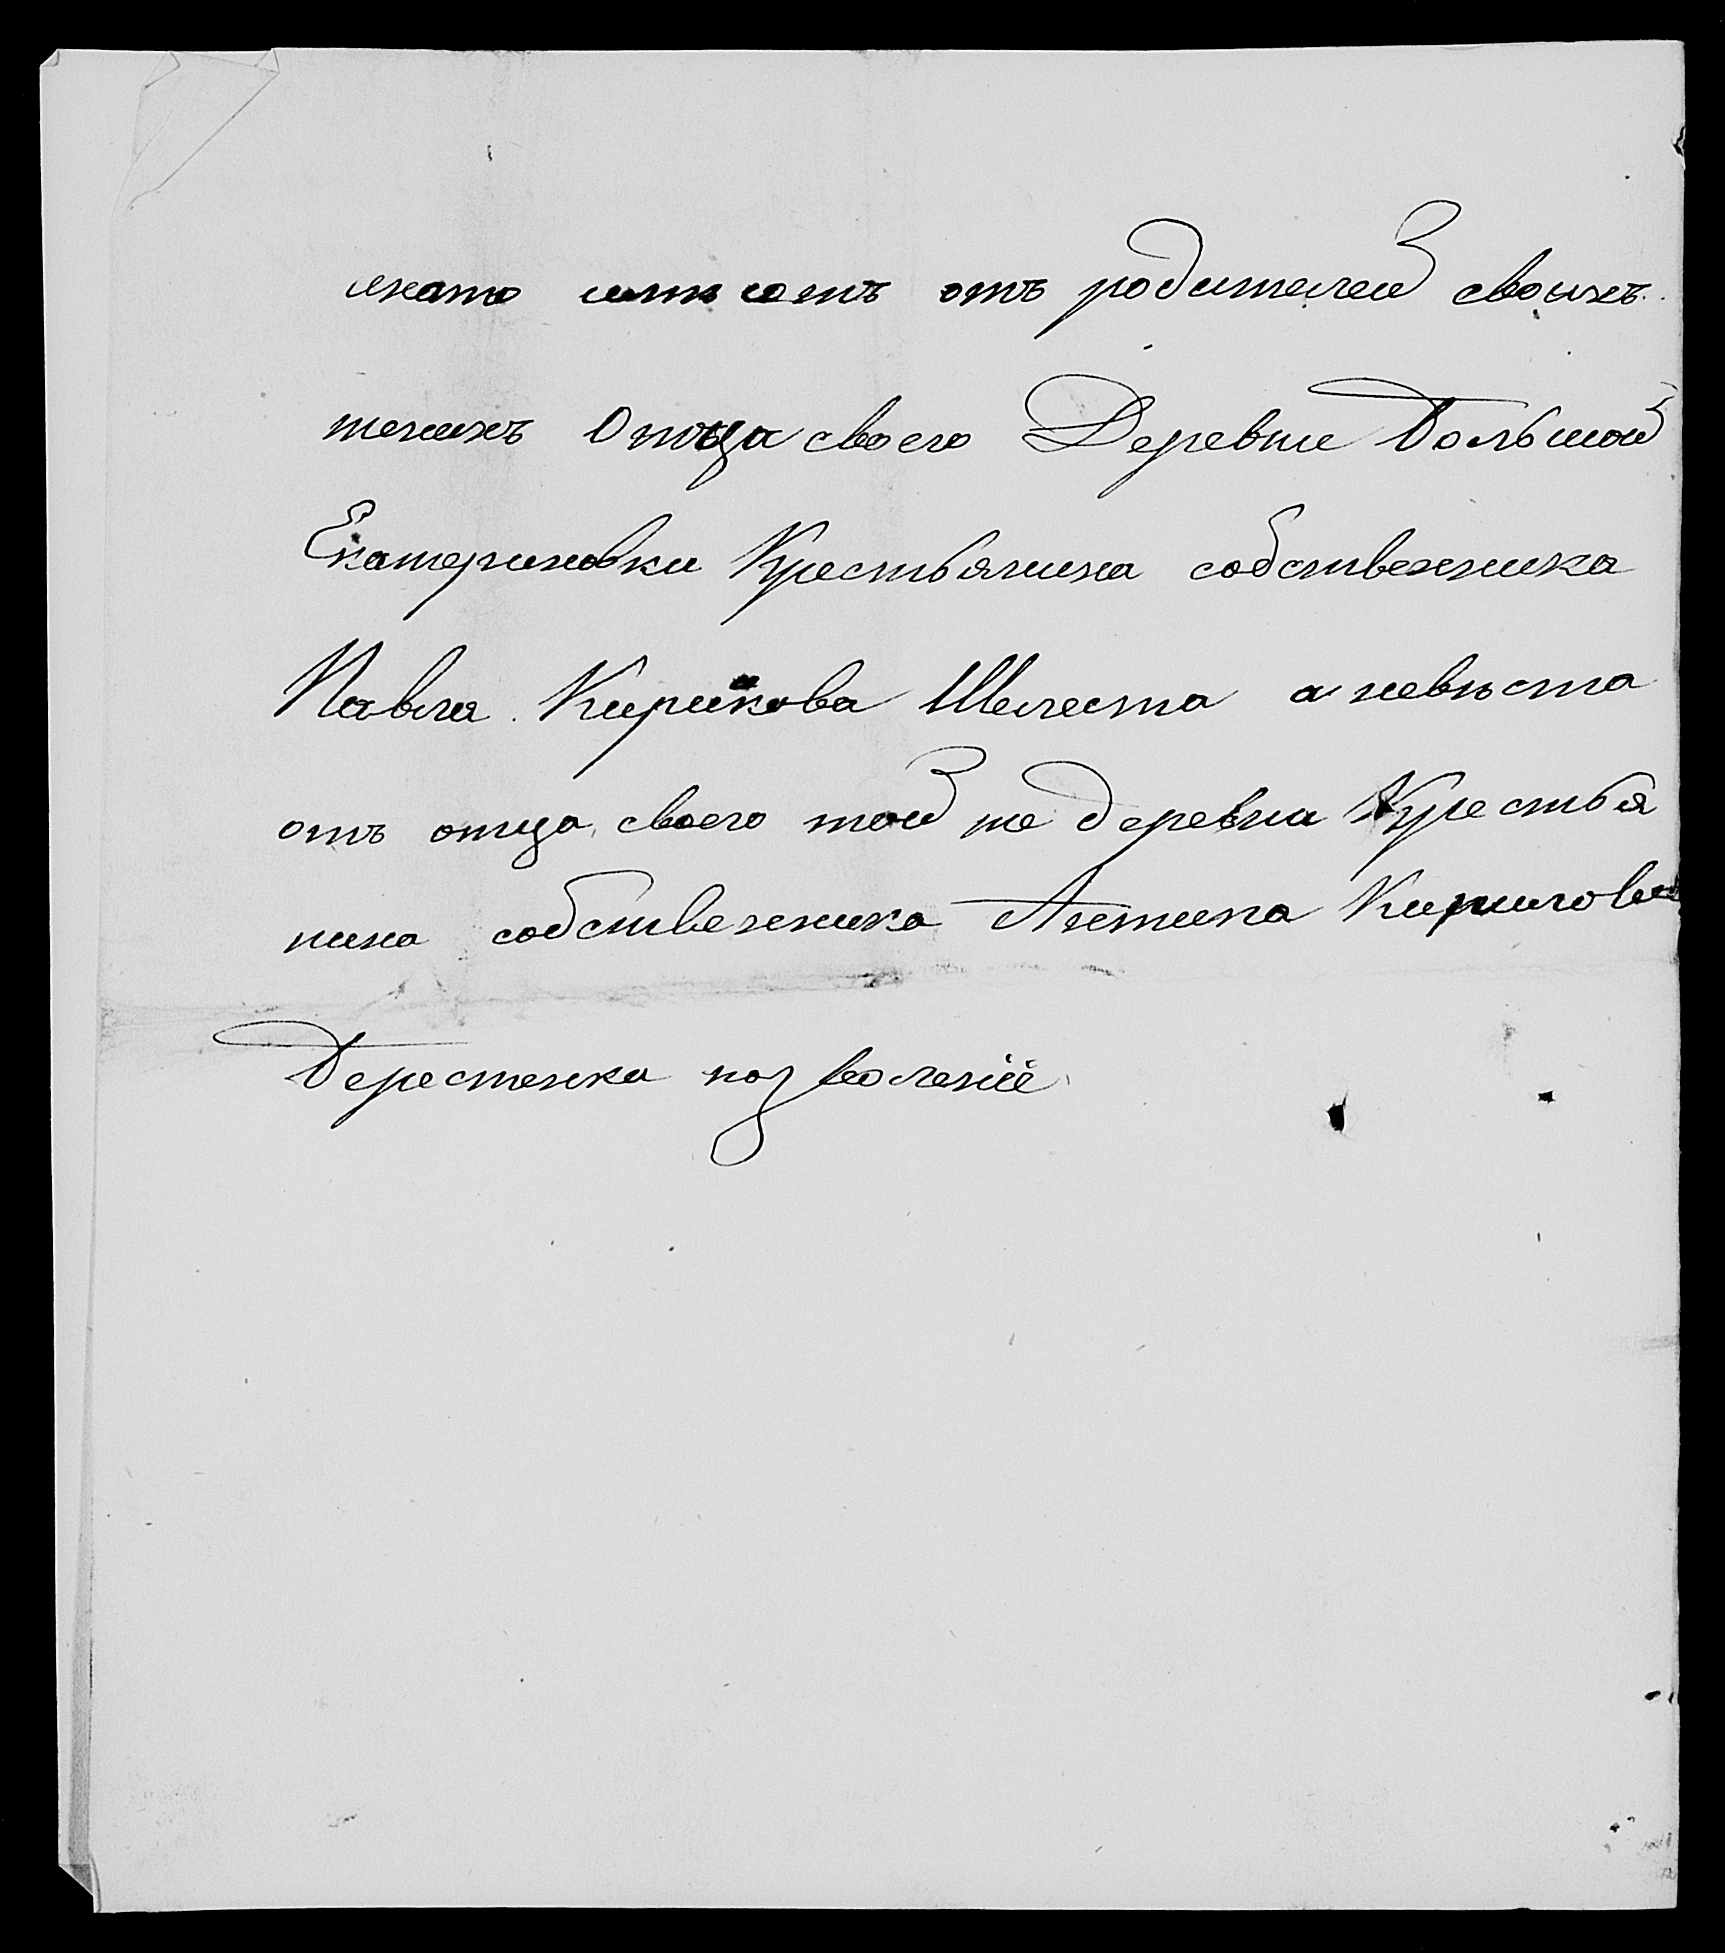 на то имѣютъ отъ родителей своихъ
женихъ Отца своего Деревни Большой
Екатериновки Крестьянина собственника
Павла Кирикова Шелеста а невѣста
отъ отца своего той же деревни Крестья
нина собственника Антипа Кирилова
Берестенка позволеніе